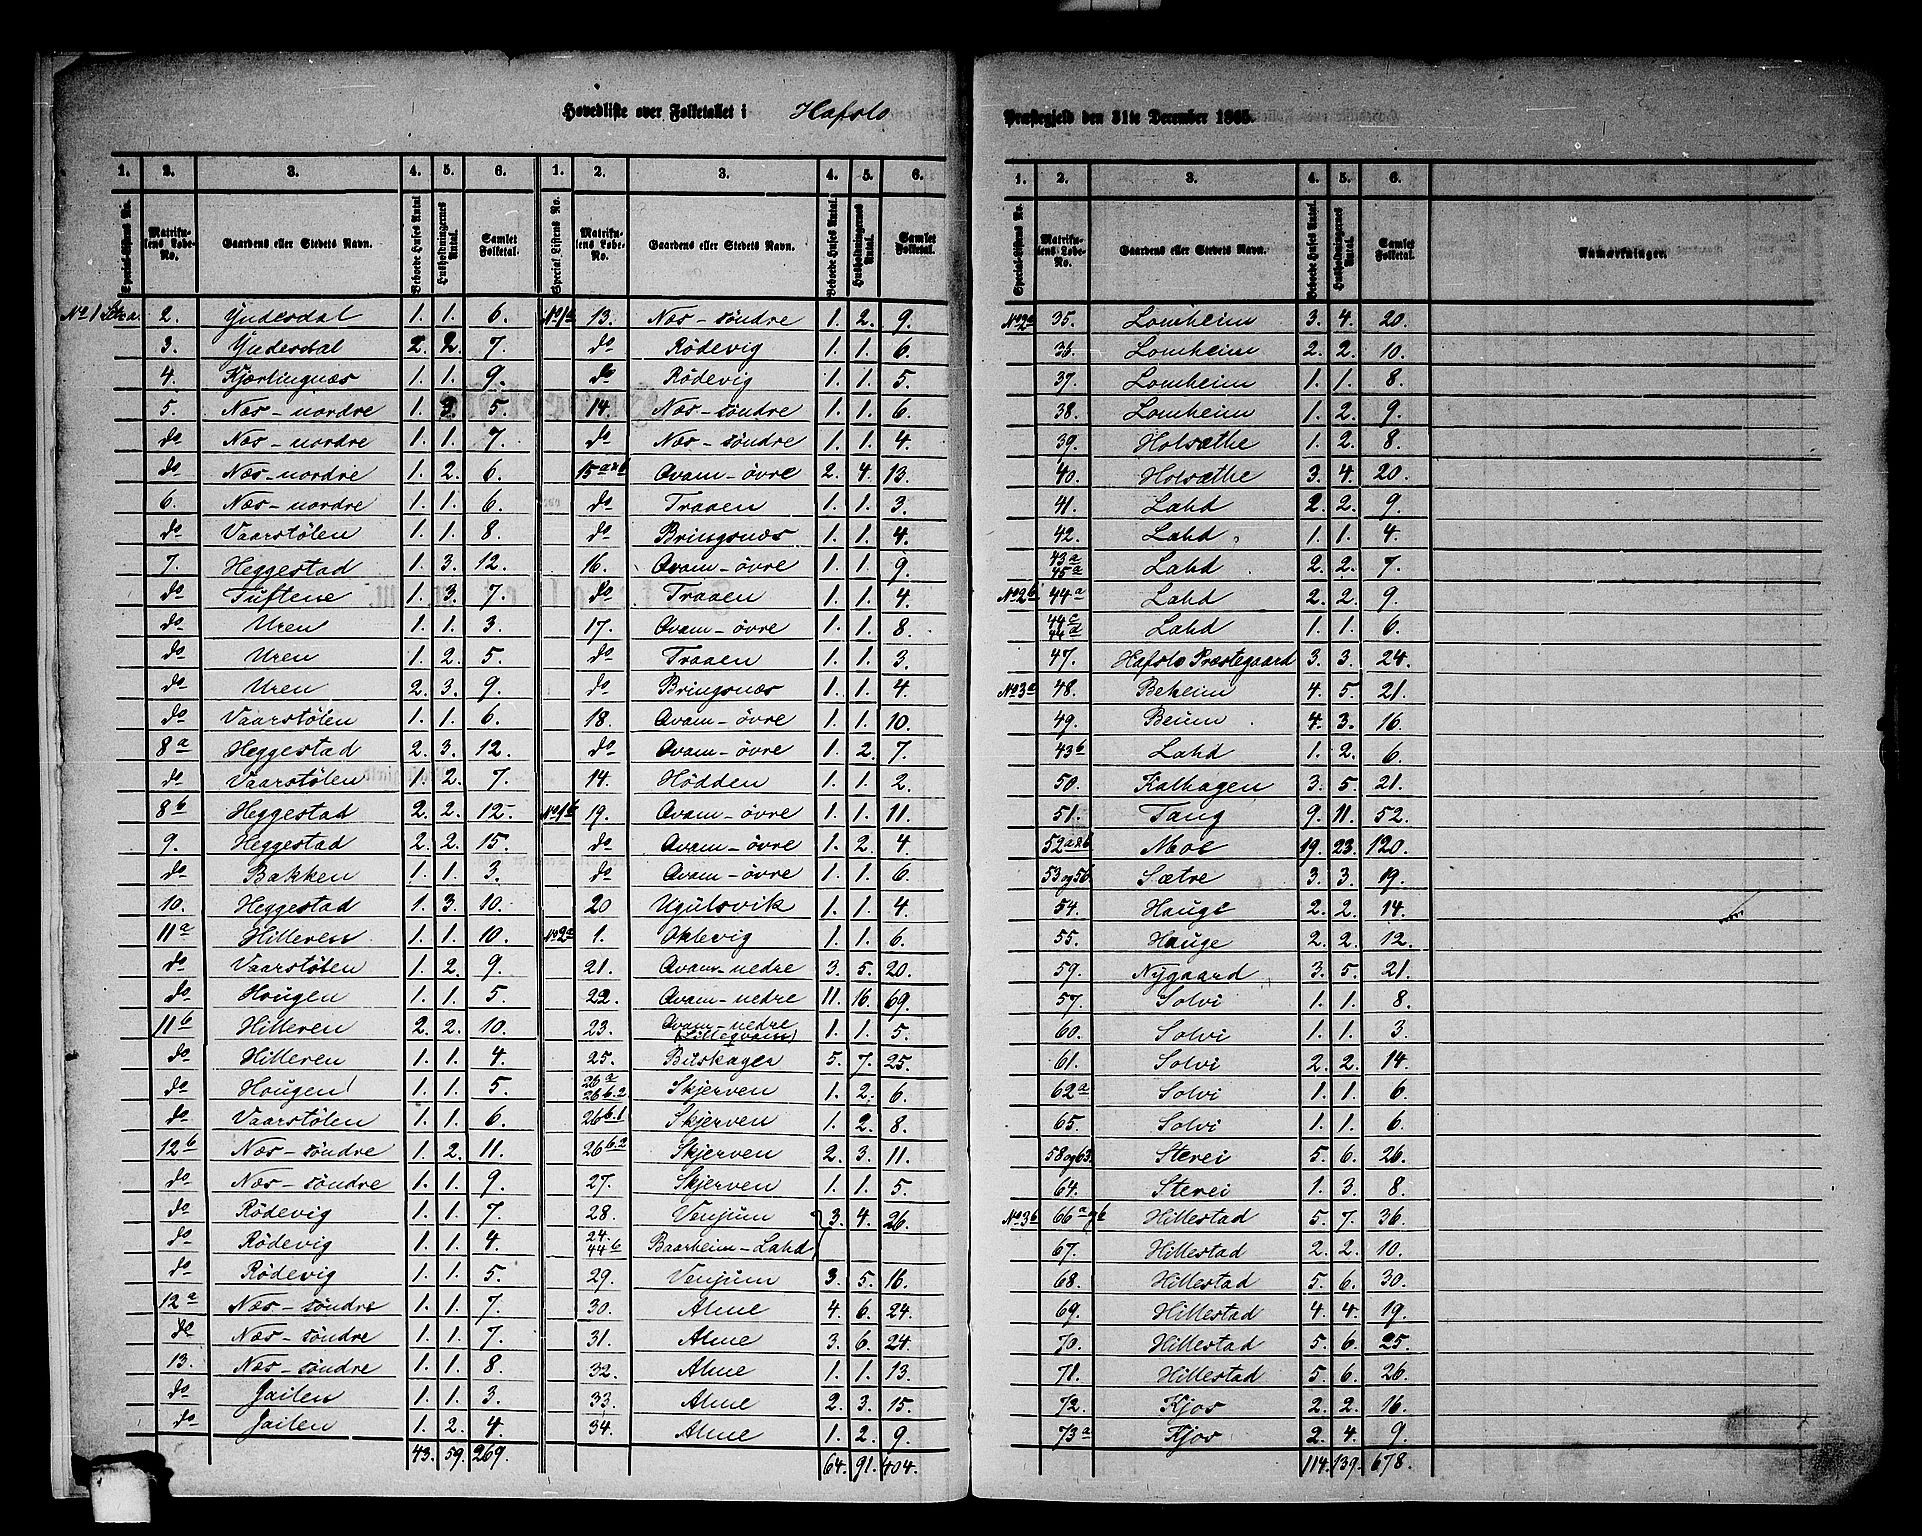 Hovedliste over Folketallet i Hafslo Præstegjeld den 31te December 1865.
1. 2. 3. 4. 5. 6.
Special-Listens No. Matrikulens Løbe-No. Gaardens eller Stedets Navn. Beboede Huses Antal Husholdningernes Antal. Samlet Folketal.
No 1 Litr a. 2. Yndesdal 1. 1. 6.
3. Yndesdal 2. 2. 7.
4. Kjærlingnæs 1. 1. 9.
5. Næs-nordre 1. 2. 5.
do Næs-nordre 1. 1. 7.
do Næs-nordre 1. 2. 6.
6. Næs-nordre 1. 1. 6.
do Vaarstølen 1. 1. 8.
7. Heggestad 1. 3. 12.
do Tuftene 1. 3. 7.
do Uren 1. 1. 3.
do Uren 1. 2. 5.
do Uren 2. 3. 9.
do Vaarstølen 1. 1. 6.
8a Heggestad 2. 3. 12.
do Vaarstølen 1. 2. 7.
8b Heggestad 2. 2. 12.
9. Heggestad 2. 2. 15.
do Bakken 1. 1. 3.
10. Heggestad 1. 3. 10.
11a Hilleren 1. 1. 10.
do Vaarstølen 1. 2. 9.
do Hougen 1. 1. 5.
11b Hilleren 2. 2. 10.
do Hilleren 1. 1. 4.
do Hougen 1. 1. 5.
do Vaarstølen 1. 1. 6.
12b Næs-söndre 1. 2. 11.
do Næs-söndre 1. 1. 9.
do Rödevig 1. 1. 7.
do Rödevig 1. 1. 4.
do Rödevig 1. 1. 5.
12a Næs-söndre 1. 1. 7.
do Næs-söndre 1. 1. 7.
13. Næs-söndre 1. 1. 8.
do Jailen 1. 1. 3.
do Jailen 1. 2. 4.
43. 59. 269.
1. 2. 3. 4. 5. 6.
Special Listens No. Matrikulens Løbe-No. Gaardens eller Stedets Navn. Beboede Huses Antal. Husholdningernes Antal. Samlet Folketal.
No 1a 13. Næs-söndre 1. 2. 9.
do Rödevig 1. 1. 6.
do Rödevig 1. 1. 5.
14. Næs-söndre 1. 1. 6.
do Næs-söndre 1. 1. 4.
15 a&b Qvam-övre 2. 4. 13.
do Traaen 1. 1. 3.
do Bringsnæs 1. 1. 4.
16. Qvam-övre 1. 1. 9.
do Traaen 1. 1. 4.
17. Qvam-övre 1. 1. 8.
do Traaen 1. 1. 3.
do Bringsnæs 1. 1. 4.
18. Qvam-övre 1. 1. 10.
do Qvam-övre 1. 2. 7.
14. Hödden 1. 1. 2.
No 1b 19. Qvam-övre 1. 1. 11.
do Qvam-övre 1. 2. 4.
do Qvam-övre 1. 1. 6.
20 Ugulsvik 1. 1. 4.
No 2a 1. Oklevig 1. 1. 6.
21. Qvam-nedre 3. 5. 20.
22. Qvam-nedre 11. 16. 69.
23. Qvam-nedre (Lilleqvam) 1. 1. 5.
25. Buskager 5. 7. 25.
26a 26b.2 Skjerven 1. 2. 6.
26b.1 Skjerven 1. 2. 8.
26b.2 Skjerven 2. 3. 11.
27. Skjerven 1. 1. 5.
28. Venjum 3. 4. 26.
24. 44b Baarheim-Lahd
29. Venjum 3. 5. 16.
30. Alme 4. 6. 24.
31. Alme 3. 6. 24.
32. Alme 1. 1. 13.
33. Alme 2. 3. 15.
34. Alme 1. 2. 9.
64. 91. 404.
1. 2. 3. 4. 5. 6.
Special-Listens No. Matrikulens Løbe-No. Gaardens eller Stedets Navn. Beboede Huses Antal. Husholdningernes Antal. Samlet Folketal. Anmærkninger.
No 2a 35. Lomheim 3. 4. 20.
36. Lomheim 2. 2. 10.
37. Lomheim 1. 1. 8.
38. Lomheim 1. 2. 9.
39. Holsæthe 1. 2. 8.
40. Holsæthe 3. 4. 20.
41. Lahd 2. 2. 9.
42. Lahd 1. 1. 4.
43a 45a Lahd 2. 2. 7.
No 2b 44a Lahd 2. 2. 9.
44c 44d Lahd 1. 1. 6.
47. Hafslo Præstegaard 3. 3. 24.
No 3a 48. Beheim 4. 5. 21.
49. Beium 4. 3. 16.
43b Lahd 1. 2. 6.
50. Kalhagen 3. 5. 21.
51. Tang 9. 11. 52.
52 a&b Moe 19. 23. 120.
53 og 56. Sætre 3. 3. 19.
54. Haugi 2. 2. 14.
55. Hauge 2. 2. 12.
59. Nygaard 3. 5. 21.
57. Solvi 1. 1. 8.
60. Solvi 1. 1. 3.
61. Solvi 2. 2. 14.
62a Solvi 1. 1. 6.
65. Solvi 1. 1. 6.
58 og 63. Sterei 5. 6. 26.
64. Sterei 1. 3. 8.
No 3b 66a og b Hillestad 5. 7. 36.
67. Hillestad 2. 2. 10.
68. Hillestad 5. 6. 30.
69. Hillestad 4. 4. 19.
70. Hillestad 5. 6. 25.
71. Hillestad 5. 6. 26.
72. Kjos 2. 2. 16.
73a Kjos 2. 4. 9.
114. 139. 678.